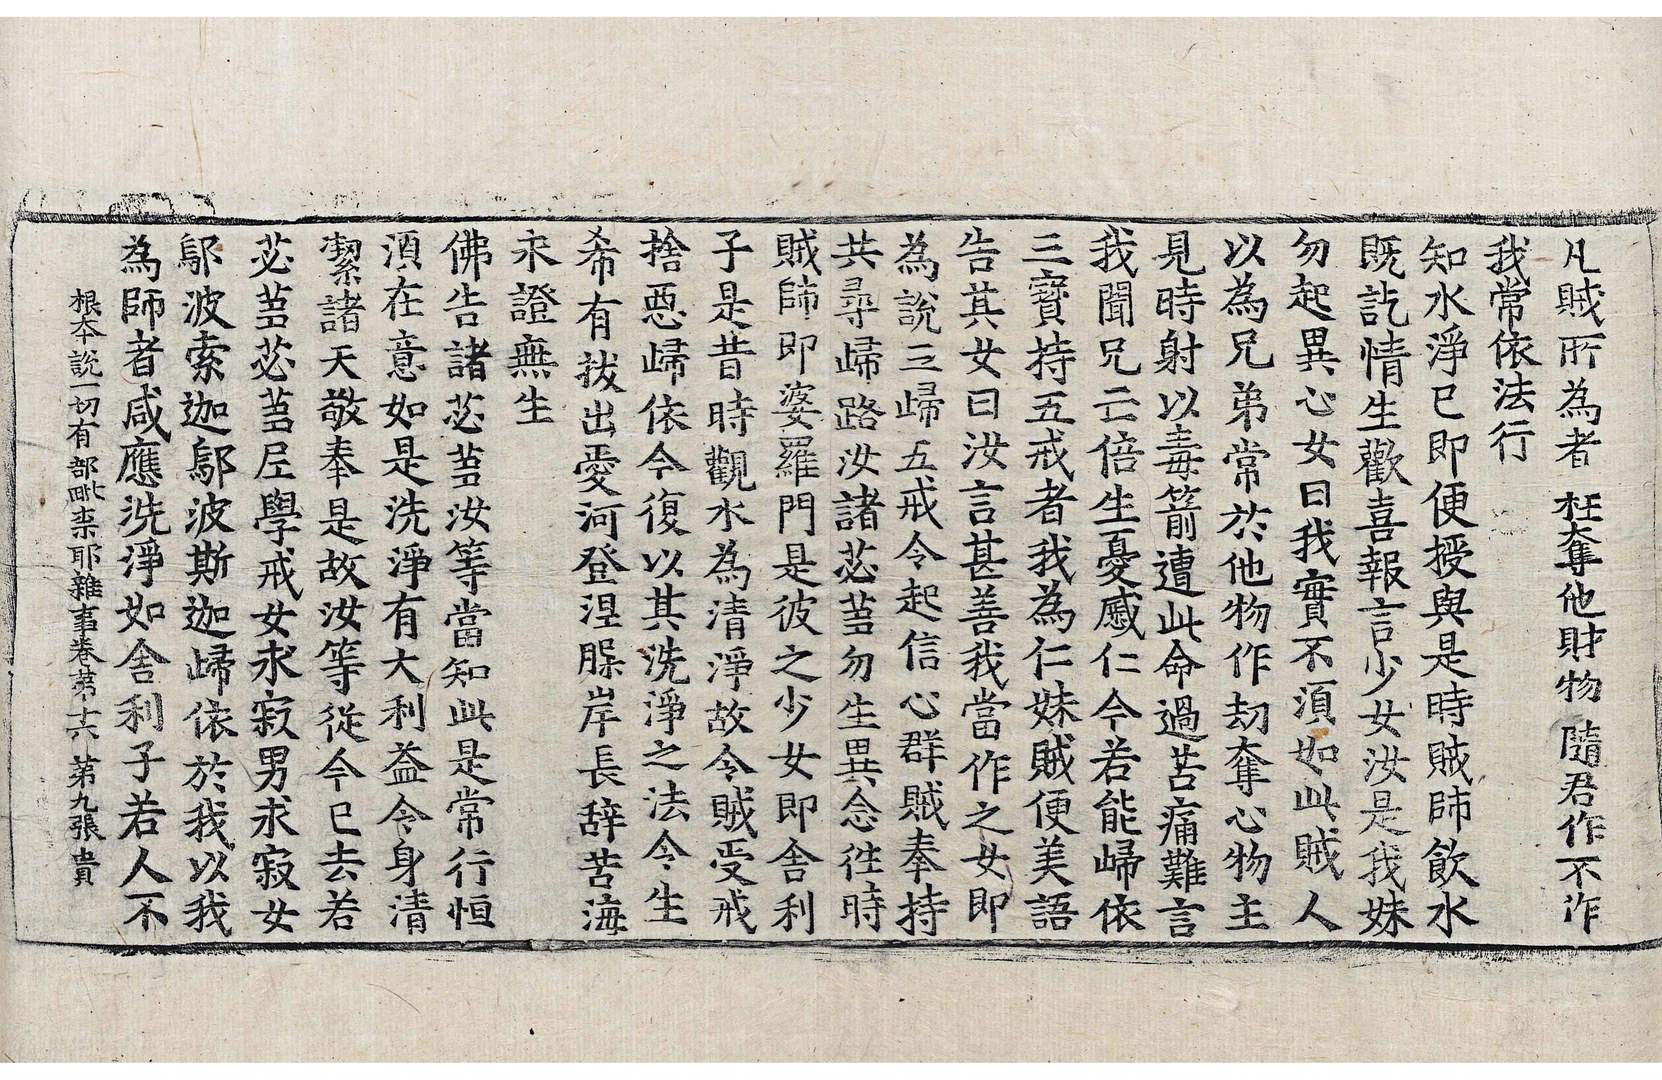 凡賊所為者 枉奪他財物 隨君作不作
我常依法行
知水淨已即便授與是時賊師飲水
既訖情生歡喜報言少女汝是我妹
勿起異心女曰我實不湏如此賊人
以為兄弟常於他物作刧奪心物主
見時射以毒箭遭此命過苦痛難言
我聞兄言倍生憂慼仁今若能歸依
三寶持五戒者我為仁妹賊便美語
告其女曰汝言甚善我當作之女即
為說三歸五戒令起信心群賊奉持
共尋歸路汝諸苾芻勿生異念徃時
賊師即婆羅門是彼之少女即舍利
子是昔時觀水為清淨故令賊受戒
捨惡歸依今復以其洗淨之法令生
希有拔出愛河登涅槃岸長辞苦海
永證無生
佛告諸苾芻汝等當知此是常行恒
湏在意如是洗淨有大利益令身清
潔諸天敬奉是故汝等從今已去若
苾芻苾芻尼學戒女求寂男求寂女
鄔波索迦鄔波斯迦歸依於我以我
為師者咸應洗淨如舍利子若人不
根本說一切有部毗柰耶雜事卷第十六 第九張 貴